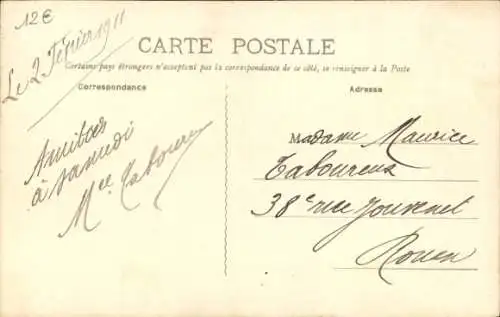 12€
Le 2 Février 1911
CARTE POSTALE
Certains pays étrangers n'acceptent pas la correspondance de ce côté, se renseigner à la Poste
Correspondance
Adresse
Amitiés
à samedi
Mce Taboureux
Madame Maurice
Taboureux
38c rue Jouvenet
Rouen